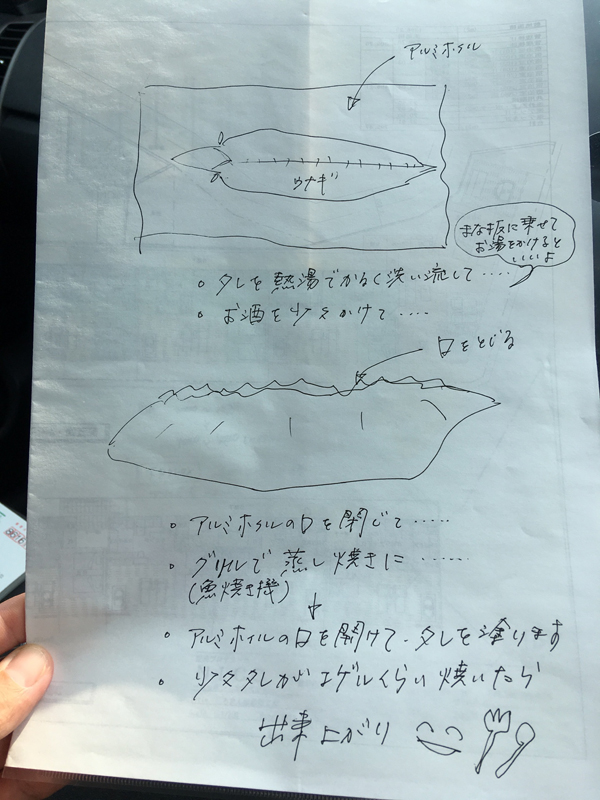 アルミホイル
ウナギ
まな板に乗せて
お湯をかけると
いいよ
・タレを熱湯でかるく洗い流して‥‥
・お酒を少々かけて‥‥
口をとじる
・アルミホイルの口を閉じて‥‥‥
・グリルで蒸し焼きに‥‥‥
(魚焼き機)
・アルミホイルの口を開けて、タレを塗ります
・少々タレがコゲルくらい焼いたら
出来上がり